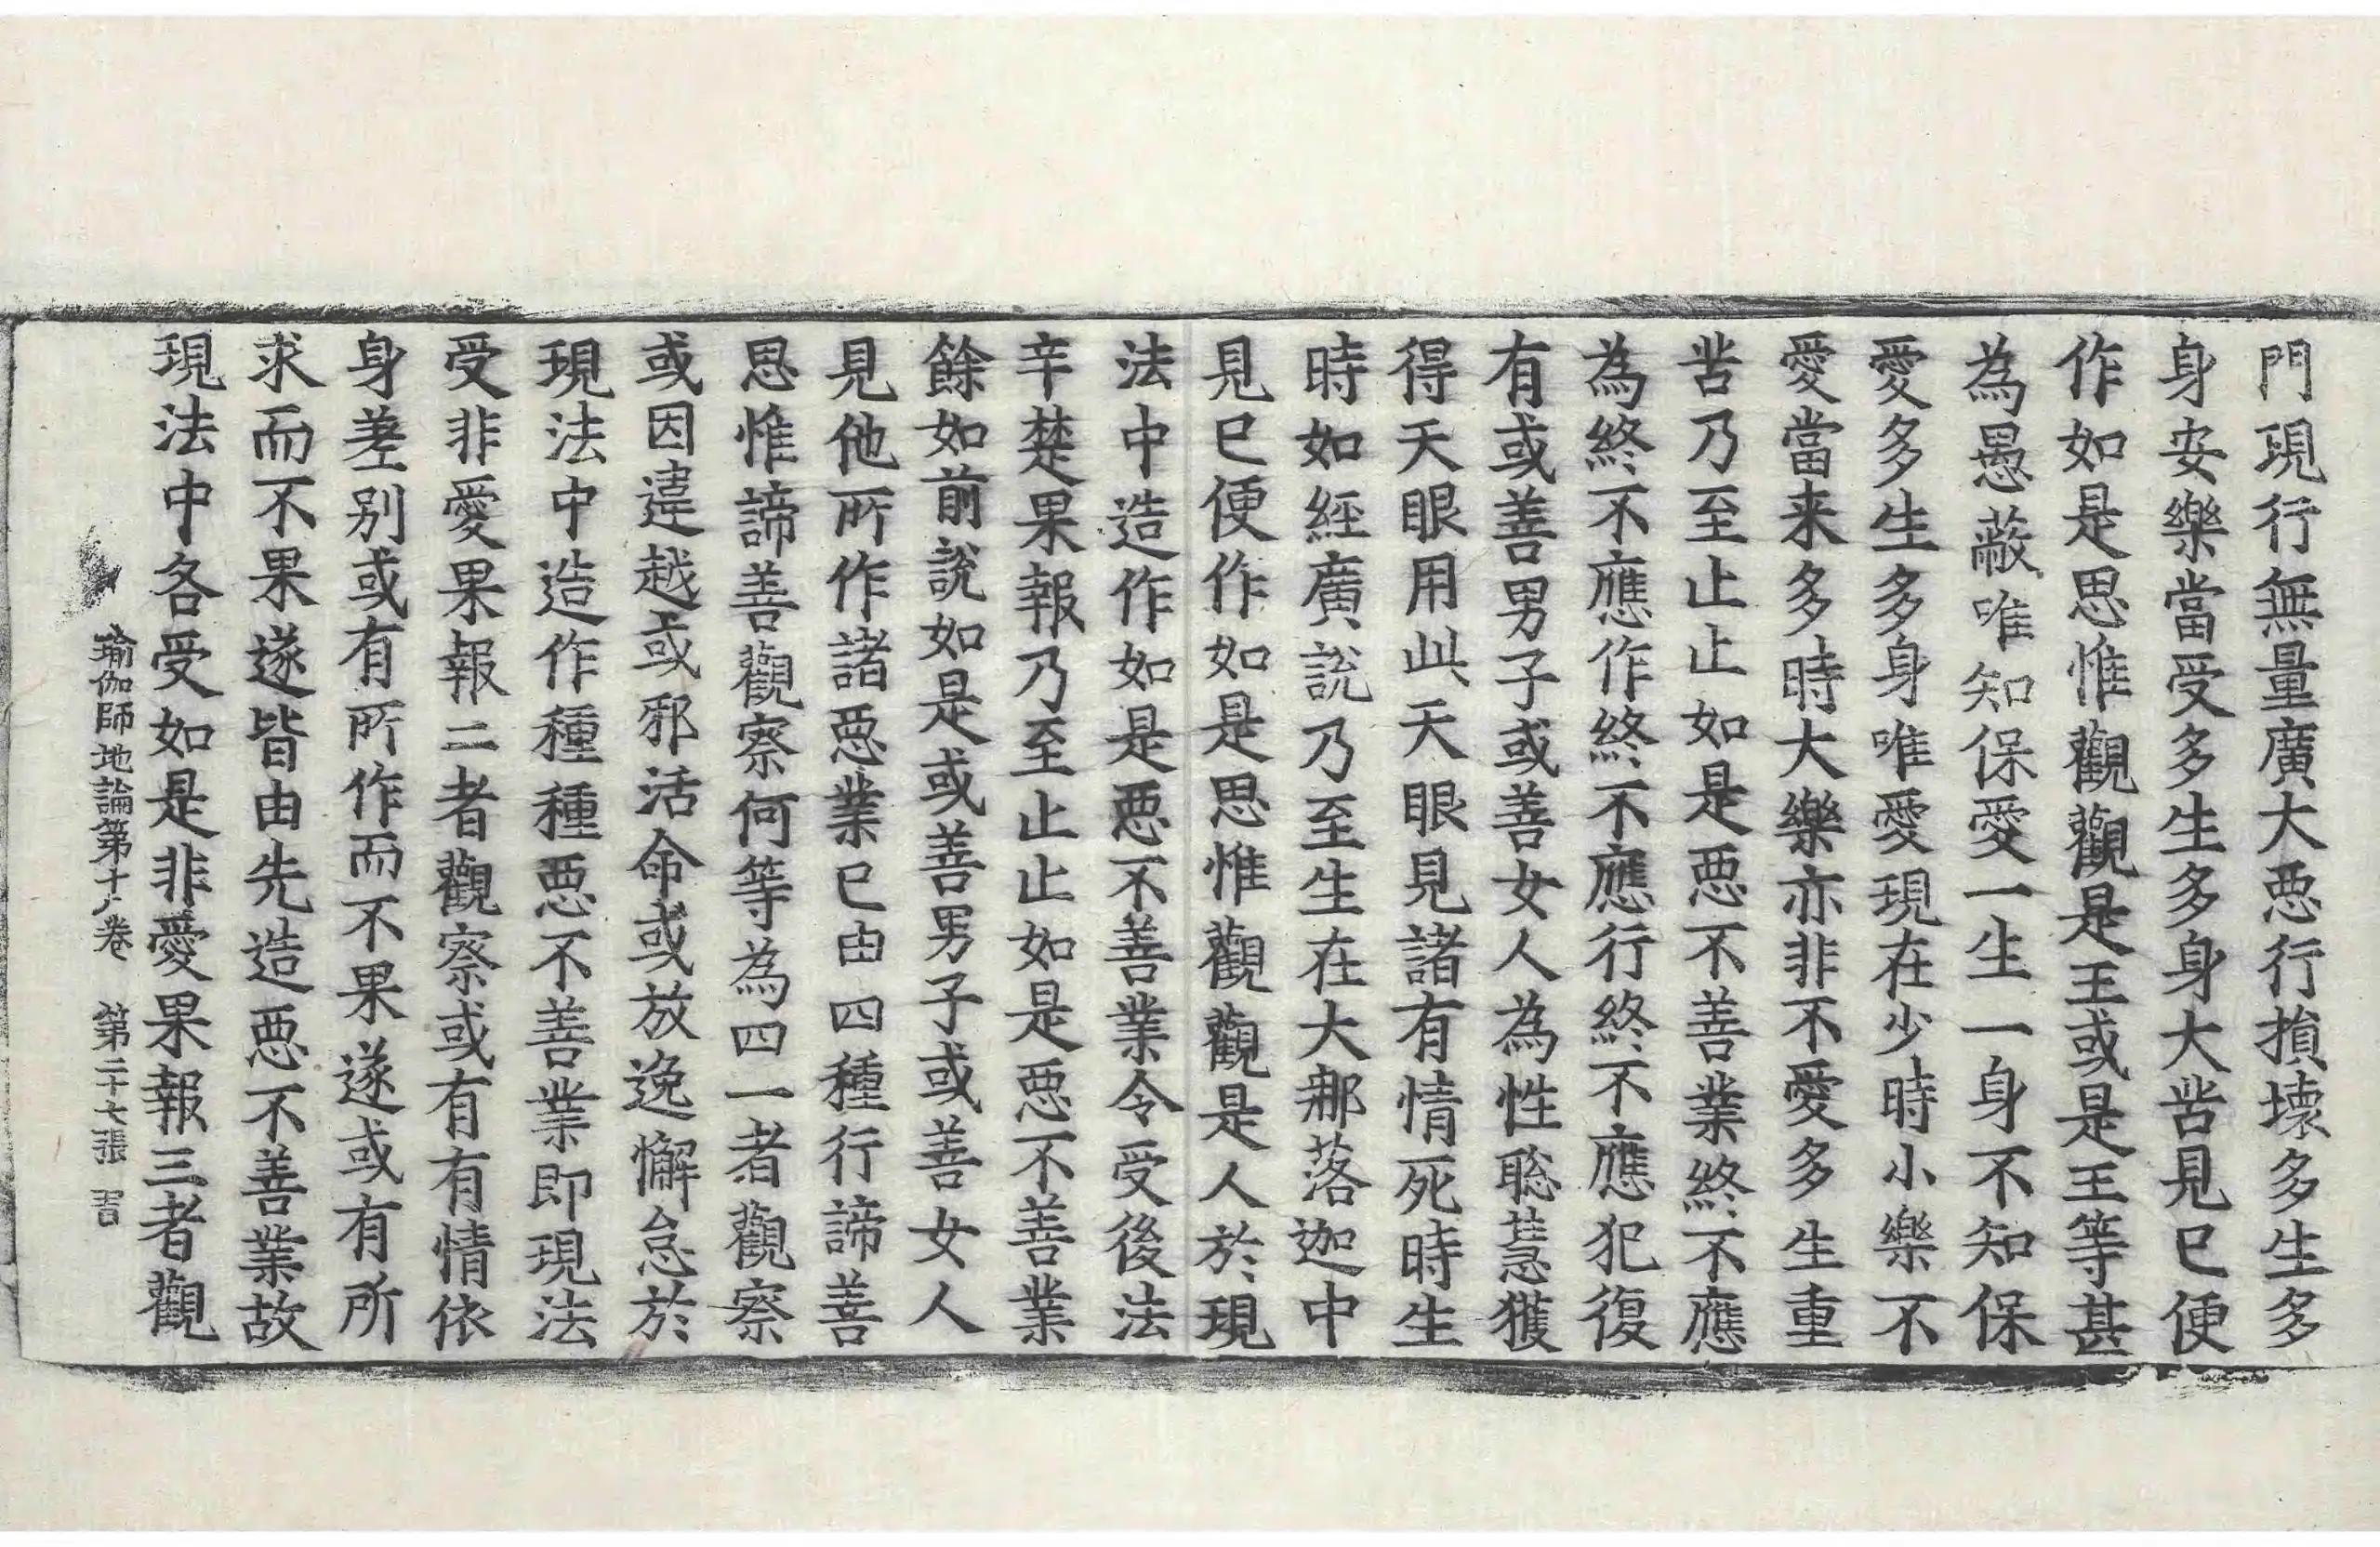 門現行無量廣大惡行損壞多生多
身安樂當受多生多身大苦見已便
作如是思惟觀觀是王或是王等甚
為愚蔽唯知保愛一生一身不知保
愛多生多身唯愛現在少時小樂不
愛當来多時大樂亦非不愛多生重
苦乃至止止如是惡不善業終不應
為終不應作終不應行終不應犯復
有或善男子或善女人為性聡慧獲
得天眼用此天眼見諸有情死時生
時如經廣說乃至生在大那落迦中
見已便作如是思惟觀觀是人於現
法中造作如是惡不善業令受後法
辛楚果報乃至止止如是惡不善業
餘如前說如是或善男子或善女人
見他所作諸惡業已由四種行諦善
思惟諦善觀察何等為四一者觀察
或因違越或邪活命或放逸懈怠於
現法中造作種種惡不善業即現法
受非愛果報二者觀察或有有情依
身差别或有所作而不果遂或有所
求而不果遂皆由先造惡不善業故
現法中各受如是非愛果報三者觀
瑜伽師地論第十八卷　第二十七張　吉